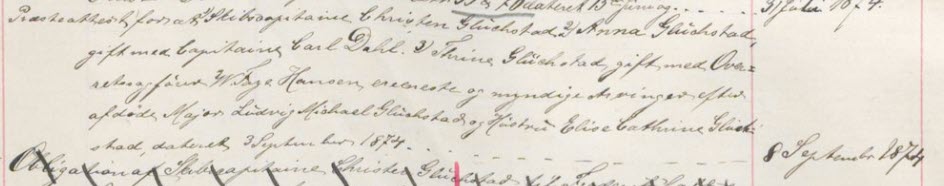 dateret 13 Juni og 31 Juli 1874.
Præsteattest for at 1/ Skibscapitaine Christen Glückstad, 2/ Anna Glückstad,
gift med Capitaine Carl Dahl. 3/ Thrine Glückstad gift med Over=
retssagfører W. Tage Hansen, ere eneste og myndige Arvinger efter
afdøde Major Ludvig Michael Glückstad og Hüstru Elise Cathrine Glück-
stad, dateret 3 September 1874. 8 September 1874
Obligation af Skibscapitaine Christen Glückstad til